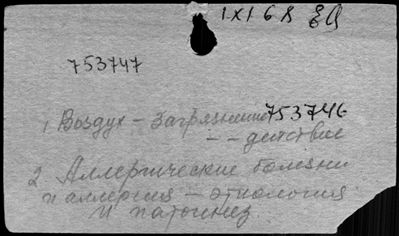 1X1 68
753747
1 Воздух - загрязнение 753746
- - действие
2 Аллергические болезни
и аллергия - этиология
и патогенез